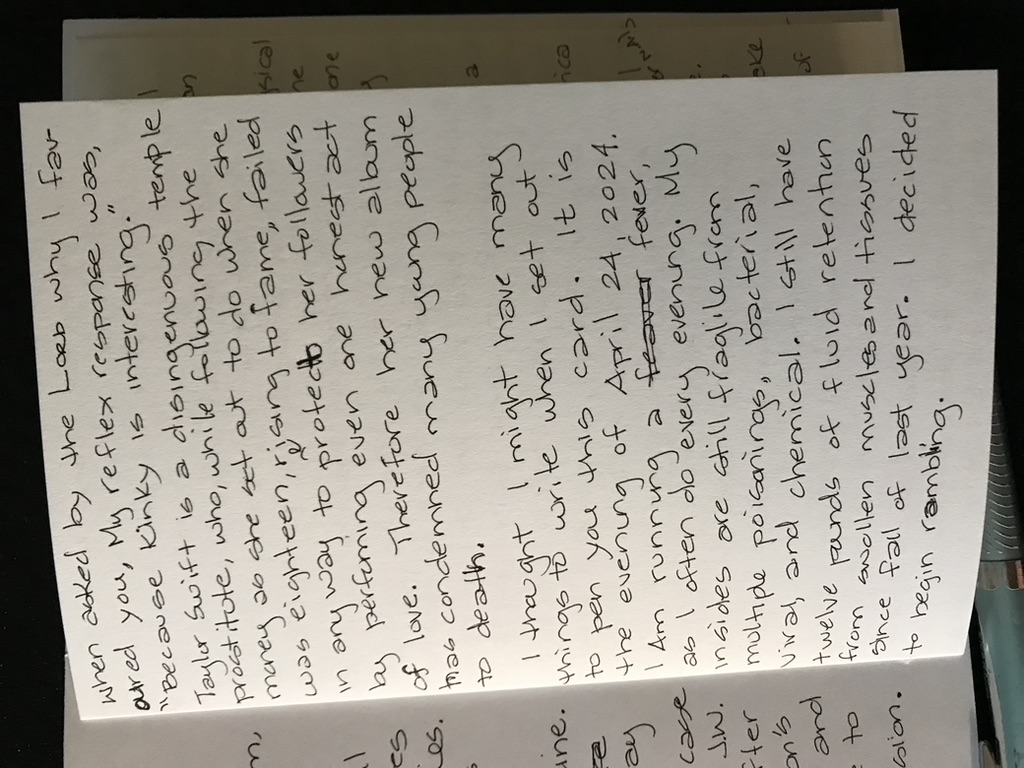 when asked by the Loeb why I fav-
oured you, My reflex response was,
"Because Kinky is interesting."
Taylor Swift is a disingenuous temple
prostitute, who, while following the
money as she set out to do when she
was eighteen, rising to fame, failed
in any way to protect her followers
by performing even one honest act
of love. Therefore her new album
has condemned many young people
to death.
I thought I might have many
things to write when I set out
to pen you this card. It is
the evening of April 24, 2024.
I Am running a feaver fever,
as I often do every evening. My
insides are still fraglile from
multiple poisonings, bacterial,
viral, and chemical. I still have
twelve pounds of fluid retention
from swollen muscles and tissues
since fall of last year. I decided
to begin rambling.
m,
l
es
es.
s
une.
ay
case
J.W.
fter
on's
and
e to
sion.
I
on
sical
he
one
y
a
ica
I
e.
oke
of